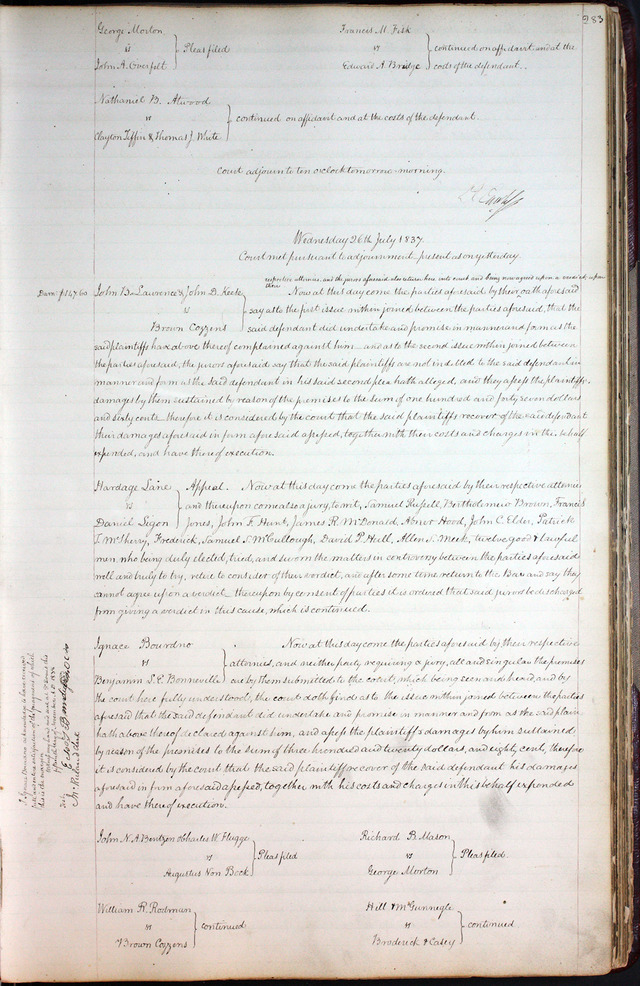 283
George Morton
vs } Pleas filed
John A. Overfelt
Francis M. Fisk
vs } continued on affidavit and at the
Edward A. Bridge costs of the defendant.
Nathaniel B. Atwood
vs } continued on affidavit and at the costs of the defendant.
Clayton Tiffin & Thomas J. White
Court adjourn to ten oclock tomorrow morning.
Wednesday 26th July 1837.
Court met pursuant to adjournment present as on yesterday.
respective attornies, and the jurors aforesaid also return here into court and being now agreed upon a verdict, upon
their
Dam: $147.60
John B. Lawrence & John D. Keese Now at this day come the parties aforesaid by their oath aforesaid
vs } say as to the first issue within joined between the parties aforesaid, that the
Brown Cozzens said defendant did undertake and promise in manner and form as the
said plaintiffs have above thereof complained against him and as to the second issue within joined between
the parties aforesaid, the jurors aforesaid say that the said plaintiffs are not indebted to the said defendant in
manner and form as the said defendant in his said second plea hath alleged, and they assess the plaintiffs
damages by them sustained by reason of the premises to the sum of one hundred and forty seven dollars
and sixty cents therefore it is considered by the court that the said plaintiffs recover of the said defendant
their damages aforesaid in form aforesaid assessed, together with their costs and charges in this behalf
expended, and have thereof execution.
Hardage Lane } Appeal. Now at this day come the parties aforesaid by their respective attornies
vs and thereupon comes also a jury, to wit, Samuel Russell, Bartholomew Brown, Francis
Daniel Ligon Jones, John F. Hunt, James R. McDonald, Abner Hood, John C. Elder, Patrick
T. McSherry, Frederick, Samuel S. McCullough, David P. Hull, Allen S. Meek, twelve good & lawful
men, who being duly elected, tried, and sworn the matters in controversy between the parties aforesaid
well and truly to try, retire to consider of their verdict, and after some time return to the Bar and say they
cannot agree upon a verdict thereupon by consent of parties it is ordered that said jurors be discharged
from giving a verdict in this cause, which is continued.
Ignace Bourdno Now at this day come the parties aforesaid by their respective
vs } attornies, and neither party requiring a jury, all and singular the premises
Benjamin L. E. Bonneville are by them submitted to the court, which being seen and heard, and by
the court here fully understood, the court doth find as to the issue within joined between the parties
aforesaid that the said defendant did undertake and promise in manner and form as the said plain
hath above thereof declared against him, and assess the plaintiffs damages by him sustained
by reason of the premises to the sum of three hundred and twenty dollars, and eighty cents, therefore
it is considered by the court that the said plaintiff recover of the said defendant his damages
aforesaid in form aforesaid assessed, together with his costs and charges in this behalf expended
and have thereof execution.
John N. A. Bentzen & Charles W. Flugge
vs } Pleas filed
Augustus Von Bock
Richard B. Mason
vs } Pleas filed.
George Morton
William R. Rodman
vs } continued
Brown Cozzens
Hill & McGunnegle
vs } continued.
Broderick & Casey